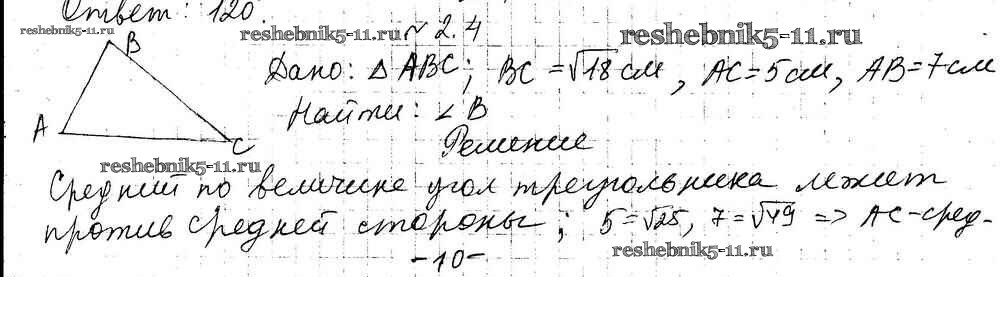 Ответ: 120.
reshebnik5-11.ru
reshebnik5-11.ru
№ 2.4
reshebnik5-11.ru
B
Дано: △ ABC; BC = √18 см, AC = 5 см, AB = 7 см
A
Найти: ∠ B
C
Решение
reshebnik5-11.ru
Средний по величине угол треугольника лежит
против средней стороны; 5=√25, 7=√49 => AC-сред-
reshebnik5-11.ru
-10-